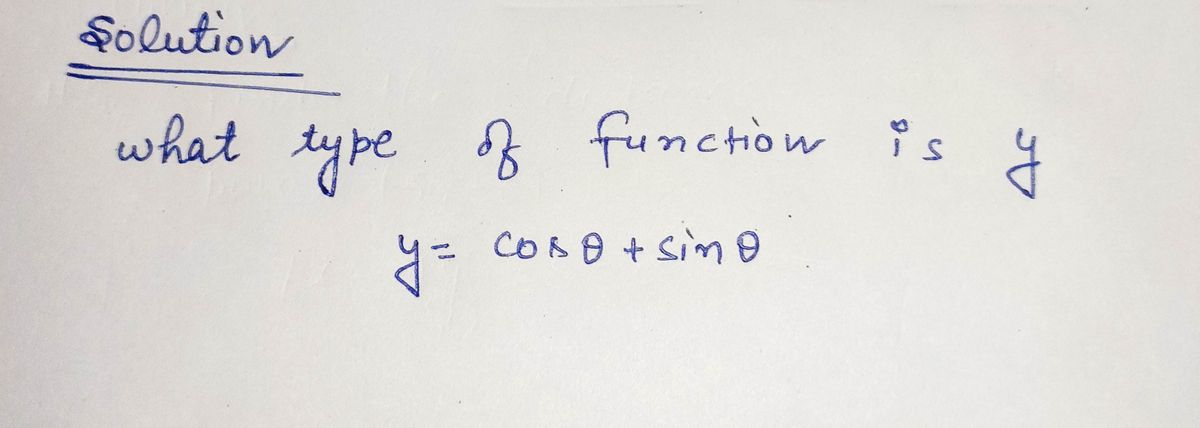 Solution
what type of function is y
y = cos θ + sin θ